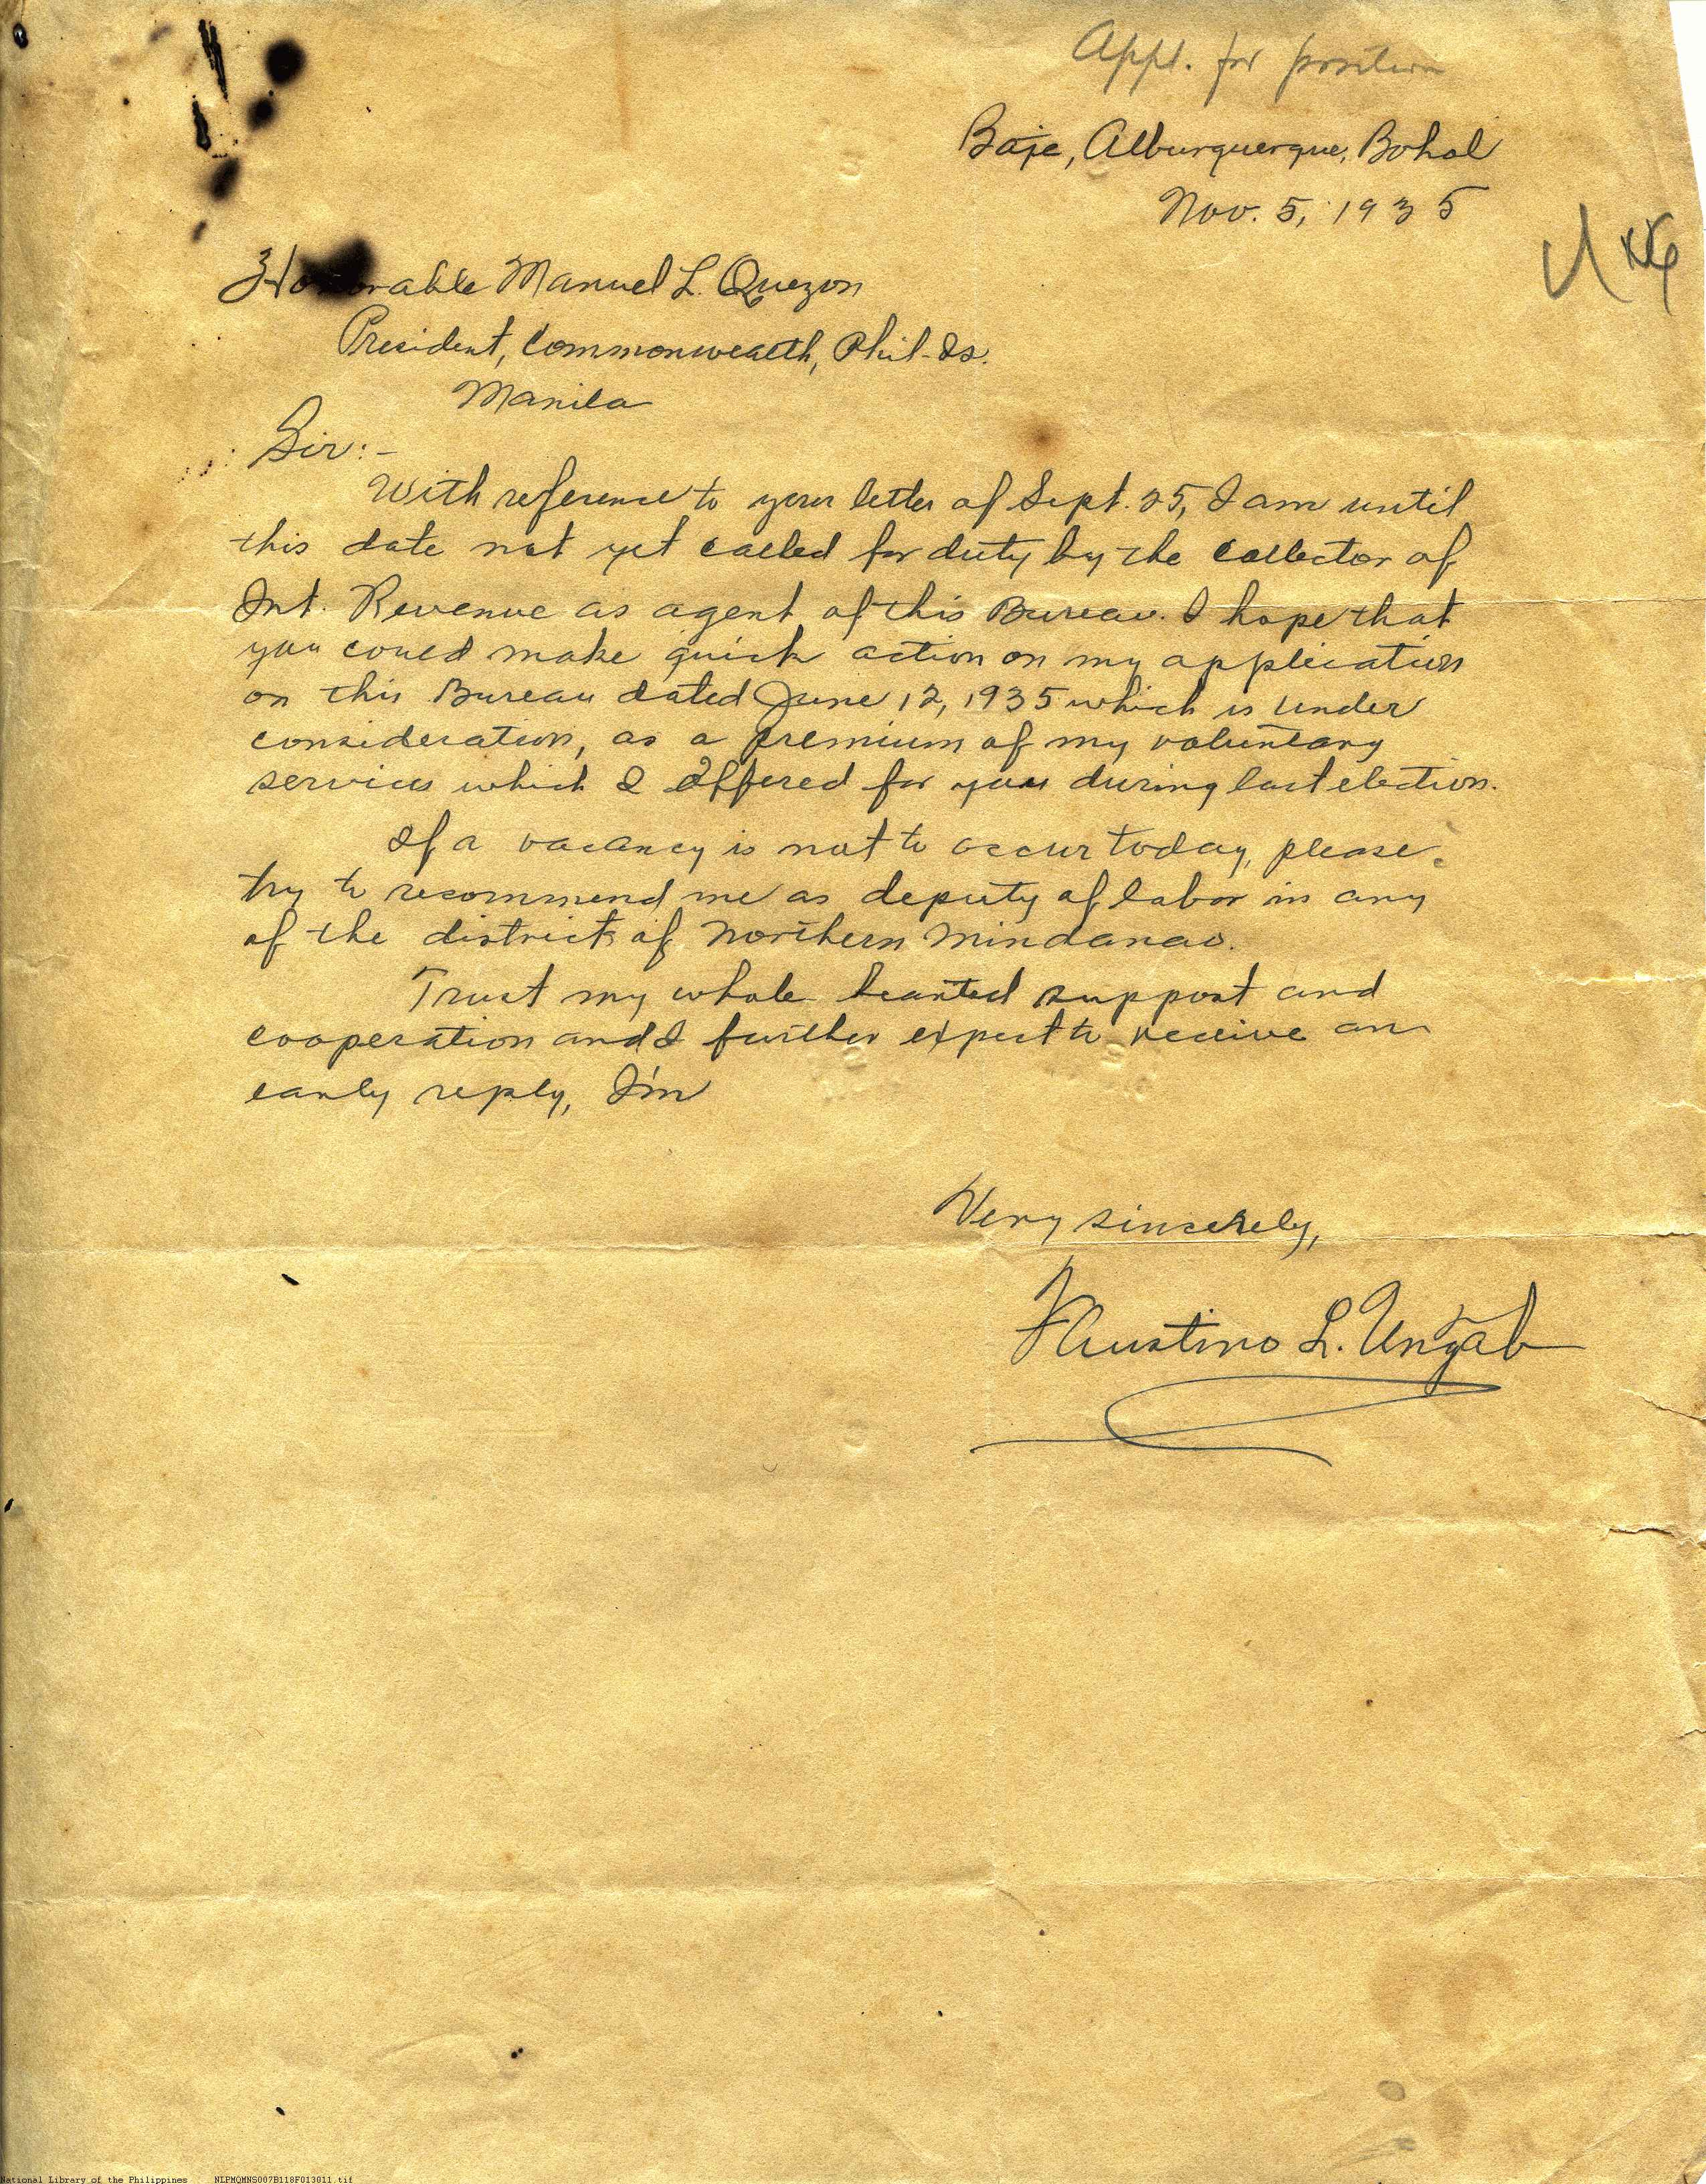 Appl. for position
Baje, Alburquerque, Bohol
Nov. 5, 1935
Honorable Manuel L. Quezon
President, Commonwealth, Phil. Is.
Manila
Sir:-
With reference to your letter of Sept. 25, I am until
this date not yet called for duty by the Collector of
Int. Revenue as agent of this Bureau. I hope that
you could make quick action on my application
on this Bureau dated June 12, 1935 which is under
consideration, as a premium of my voluntary
services which I offered for you during last election.
If a vacancy is not to occur today, please
try to recommend me as deputy of labor in any
of the districts of Northern Mindanao.
Trust my whole hearted support and
cooperation and I further expect to receive an
early reply, I'm
Very sincerely,
Faustino L. Ungab
National Library of the Philippines NLPMQMNS007B118F013011.tif